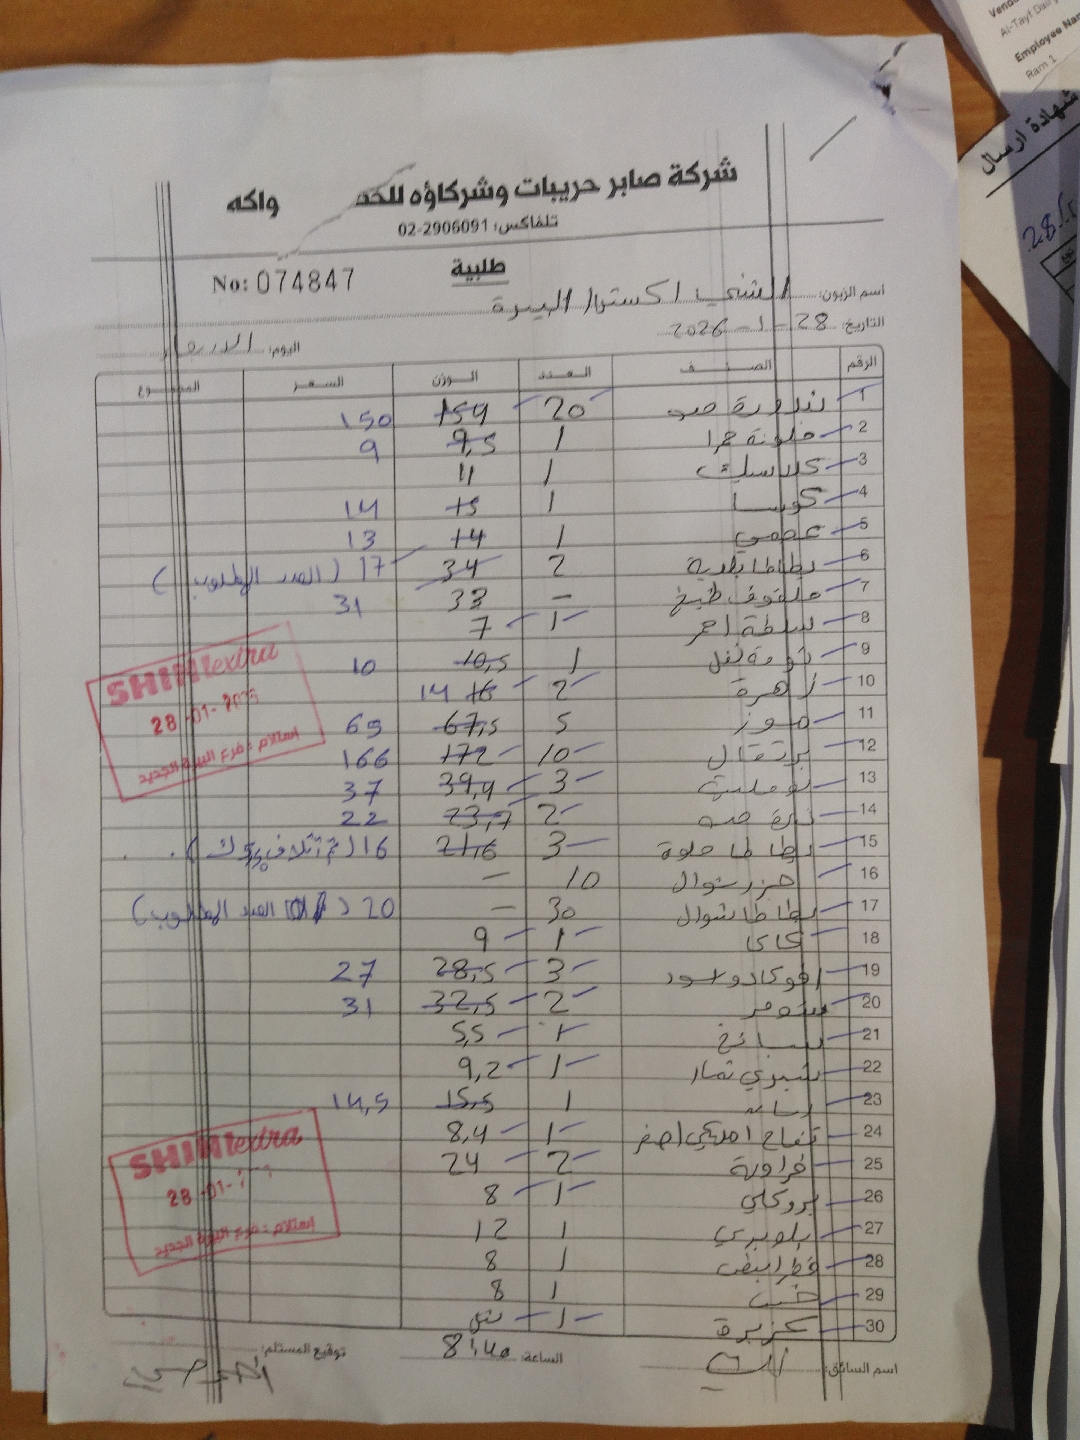 شركة صابر حريبات وشركاؤه للخد واكه
تلفاكس: 02-2906091
طلبية
No: 074847
اسم الزبون: الشني اكسترا البيرة
التاريخ: 28-1-2026
اليوم: الاربعاء
الرقم الصنف العدد الوزن السعر المجموع
1 بندورة 20 154 150
2 ملونة حمرا 1 9,5 9
3 كلاسيك 1 11
4 كوسا 1 15 14
5 1 14 13
6 بطاطا بلدية 2 34 17 (العدد المطلوب)
7 ملفوف طبخ - 33 31
8 سلطة احمر 1 7
9 ثومة تفل 1 10,5 10
10 زهرة 2 16 14
11 موز 5 67,5 65
12 برتقال 10 172 166
13 بوملي 3 39,4 37
14 2 23,7 22
15 بطاطا حلوة 3 21,6 16
16 جزر شوال 10 -
17 بطاطا شوال 30 - 20 (العدد المطلوب)
18 كاكا 1 9
19 افوكادو اسود 3 28,5 27
20 شومر 2 32,5 31
21 سبانخ 1 5,5
22 شيري تمار 1 9,2
23 1 15,5 14,5
24 تفاح امريكي اصفر 1 8,4
25 فراولة 2 24
26 بروكلي 1 8
27 بلوبيري 1 12
28 فطر ابيض 1 8
29 خس 1 8
30 كزبرة 1
اسم السائق:
الساعة: 8:40
توقيع المستلم:
SHINI extra
28-01-2026
استلام : فرع البيرة الجديد
SHINI extra
28-01-
استلام : فرع البيرة الجديد
Al-Tayf Dairy
Employee Na
Ram 1
شهادة ارسال
28